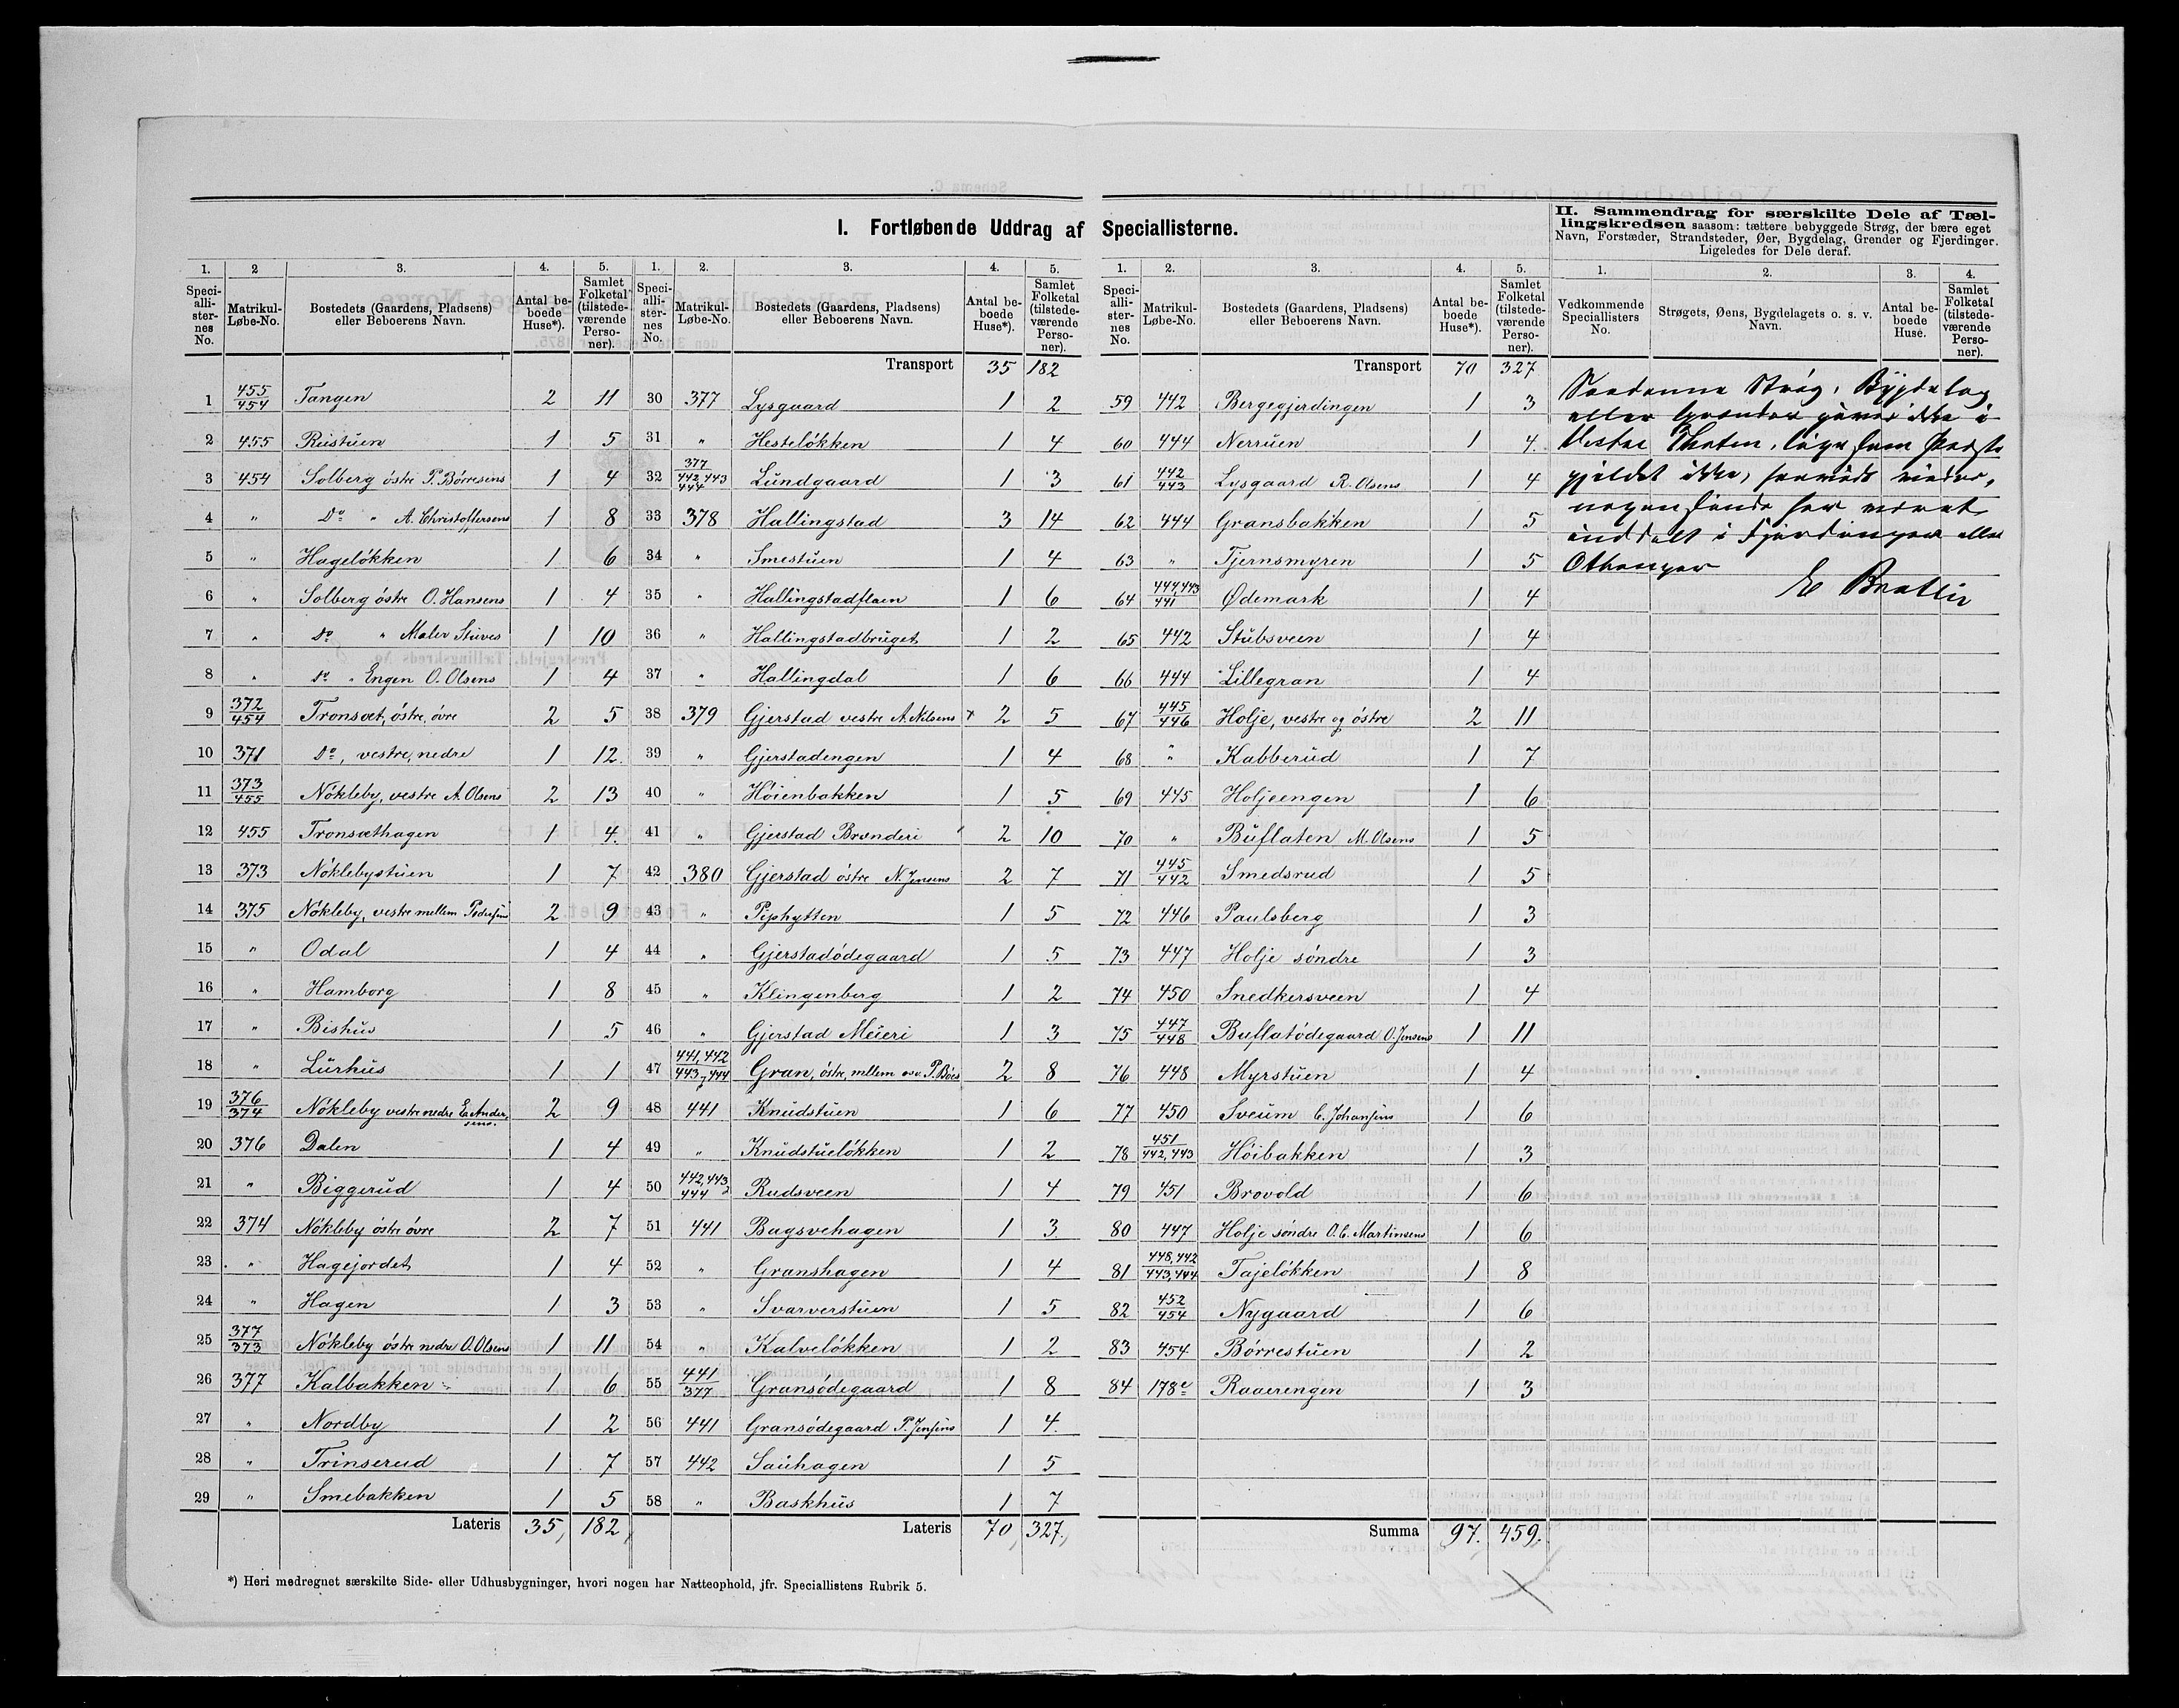 I. Fortløbende Uddrag af Speciallisterne.
II. Sammendrag for særskilte Dele af Tæl-
lingskredsen saasom: tættere bebyggede Strøg, der bære eget
Navn, Forstæder, Strandsteder, Øer, Bygdelag, Grender og Fjerdinger.
Ligeledes for Dele deraf.
1. 2 3. 4. 5.
Speci-alli-ster-nes No. Matrikul-Løbe-No. Bostedets (Gaardens, Pladsens) eller Beboerens Navn. Antal be-boede Huse*). Samlet Folketal (tilstede-værende Perso-ner).
1 455/454 Tangen 2 11
2 455 Rustuen 1 5
3 454 Solberg østre P. Børresens 1 4
4 " Do " A. Christoffersens 1 8
5 " Hageløkken 1 6
6 " Solberg østre O. Hansens 1 4
7 " do " Maler Stuves 1 10
8 " do " Engen O. Olsens 1 4
9 372/454 Tronsæt, østre, øvre 2 5
10 371 Do, vestre, nedre 1 12.
11 373/455 Nøkleby, vestre A. Olsens 2 13
12 455 Tronsæthagen 1 4.
13 373 Nøklebystuen 1 7
14 375 Nøkleby, vestre mellem Pedersens 2 9
15 " Odal 1 4
16 " Hamborg 1 8
17 " Bishus 1 5
18 " Lurhus 1 1
19 376/374 Nøkleby vestre nedre E. Ander-
sens. 2 9
20 376 Dalen 1 4
21 " Biggerud 1 4
22 374 Nøkleby østre øvre 2 7
23 " Hagejordet 1 4
24 " Hagen 1 3
25 377/373 Nøkleby østre nedre O. Olsens 1 11
26 377 Kalbakken 1 6
27 " Nordby 1 2
28 " Trinserud 1 7
29 " Smebakken 1 5
Lateris 35, 182,
1. 2. 3. 4. 5.
Speci-alli-ster-nes No. Matrikul-Løbe-No. Bostedets (Gaardens, Pladsens) eller Beboerens Navn. Antal be-boede Huse*). Samlet Folketal (tilstede-værende Perso-ner).
Transport 35 182
30 377 Lysgaard 1 2
31 " Hesteløkken 1 4
32 377 442,443 444 Lundgaard 1 3
33 378 Hallingstad 3 14
34 " Smestuen 1 4
35 " Hallingstadflaen 1 6
36 " Hallingstadbruget 1 2
37 " Hallingdal 1 6
38 379 Gjerstad vestre A. Nilsens 2 5
39 " Gjerstadengen 1 4
40 " Høienbakken 1 5
41 " Gjerstad Brænderi 2 10
42 380 Gjerstad østre N. Jensens 2 7
43 " Piphytten 1 5
44 " Gjerstadødegaard 1 5
45 " Klingenberg 1 2
46 " Gjerstad Meieri 1 3
47 441,442/443,444 Gran, østre, mellem osv. P. Bøes 2 8
48 441 Knudstuen 1 6
49 " Knudstueløkken 1 2
50 442,443 444 Rudsveen 1 4
51 441 Bagsvehagen 1 3
52 " Granshagen 1 4
53 " Svarverstuen 1 5
54 " Kalveløkken 1 2
55 441/377 Gransødegaard 1 8
56 441 Gransødegaard P. Jensens 1 4.
57 442 Sauhagen 1 5
58 " Baskhus 1 7
Lateris 70, 327.,
1. 2. 3. 4. 5.
Speci-alli-ster-nes No. Matrikul-Løbe-No. Bostedets (Gaardens, Pladsens) eller Beboerens Navn. Antal be-boede Huse*). Samlet Folketal (tilstede-værende Perso-ner).
Transport 70 327
59 442 Bergegjerdingen 1 3
60 444 Nerruen 1 4.
61 442/443 Lysgaard R. Olsens 1 4
62 444 Gransbakken 1 5
63 " Tjernsmyren 1 5
64 444,443/441 Ødemark 1 4
65 442 Stubsveen 1 4
66 444 Lillegran 1 4
67 445/446 Holje, vestre og østre 2 11
68 " Kabberud 1 7
69 445 Holjeengen 1 6
70 " Buflaten M. Olsens 1 5
71 445/442 Smedsrud 1 5
72 446 Paulsberg 1 3
73 447 Holje søndre 1 3
74 450 Snedkersveen 1 4
75 447/448 Buflatødegaard O. Jensens 1 11
76 448 Myrstuen 1 4
77 450 Sveum C. Johansens 1 6
78 451/442,443 Høibakken 1 3
79 451 Brovold 1 6
80 447 Holje søndre O. C. Martinsens 1 6
81 448,442/443,444 Tajeløkken 1 8
82 452/454 Nygaard 1 6
83 454 Børrestuen 1 2
84 178 e Raaerengen 1 3
Summa 97. 459.
1. 2. 3. 4.
Vedkommende Speciallisters No. Strøgets, Øens, Bygdelagets o. s. v. Navn. Antal be-boede Huse. Samlet Folketal (tilstede-værende Perso-ner).
Saadanne Strøg, Bygdelag
eller Grender gives ikke i
Vestre Thoten, ligesom Præste
gjeldet ikke, saavidt vides,
nogensinde har været
inddelt i Fjerdinger eller
Ottinger
E Bratlie
*) Heri medregnet særskilte Side- eller Udhusbygninger, hvori nogen har Natteophold, jfr. Speciallistens Rubrik 5.